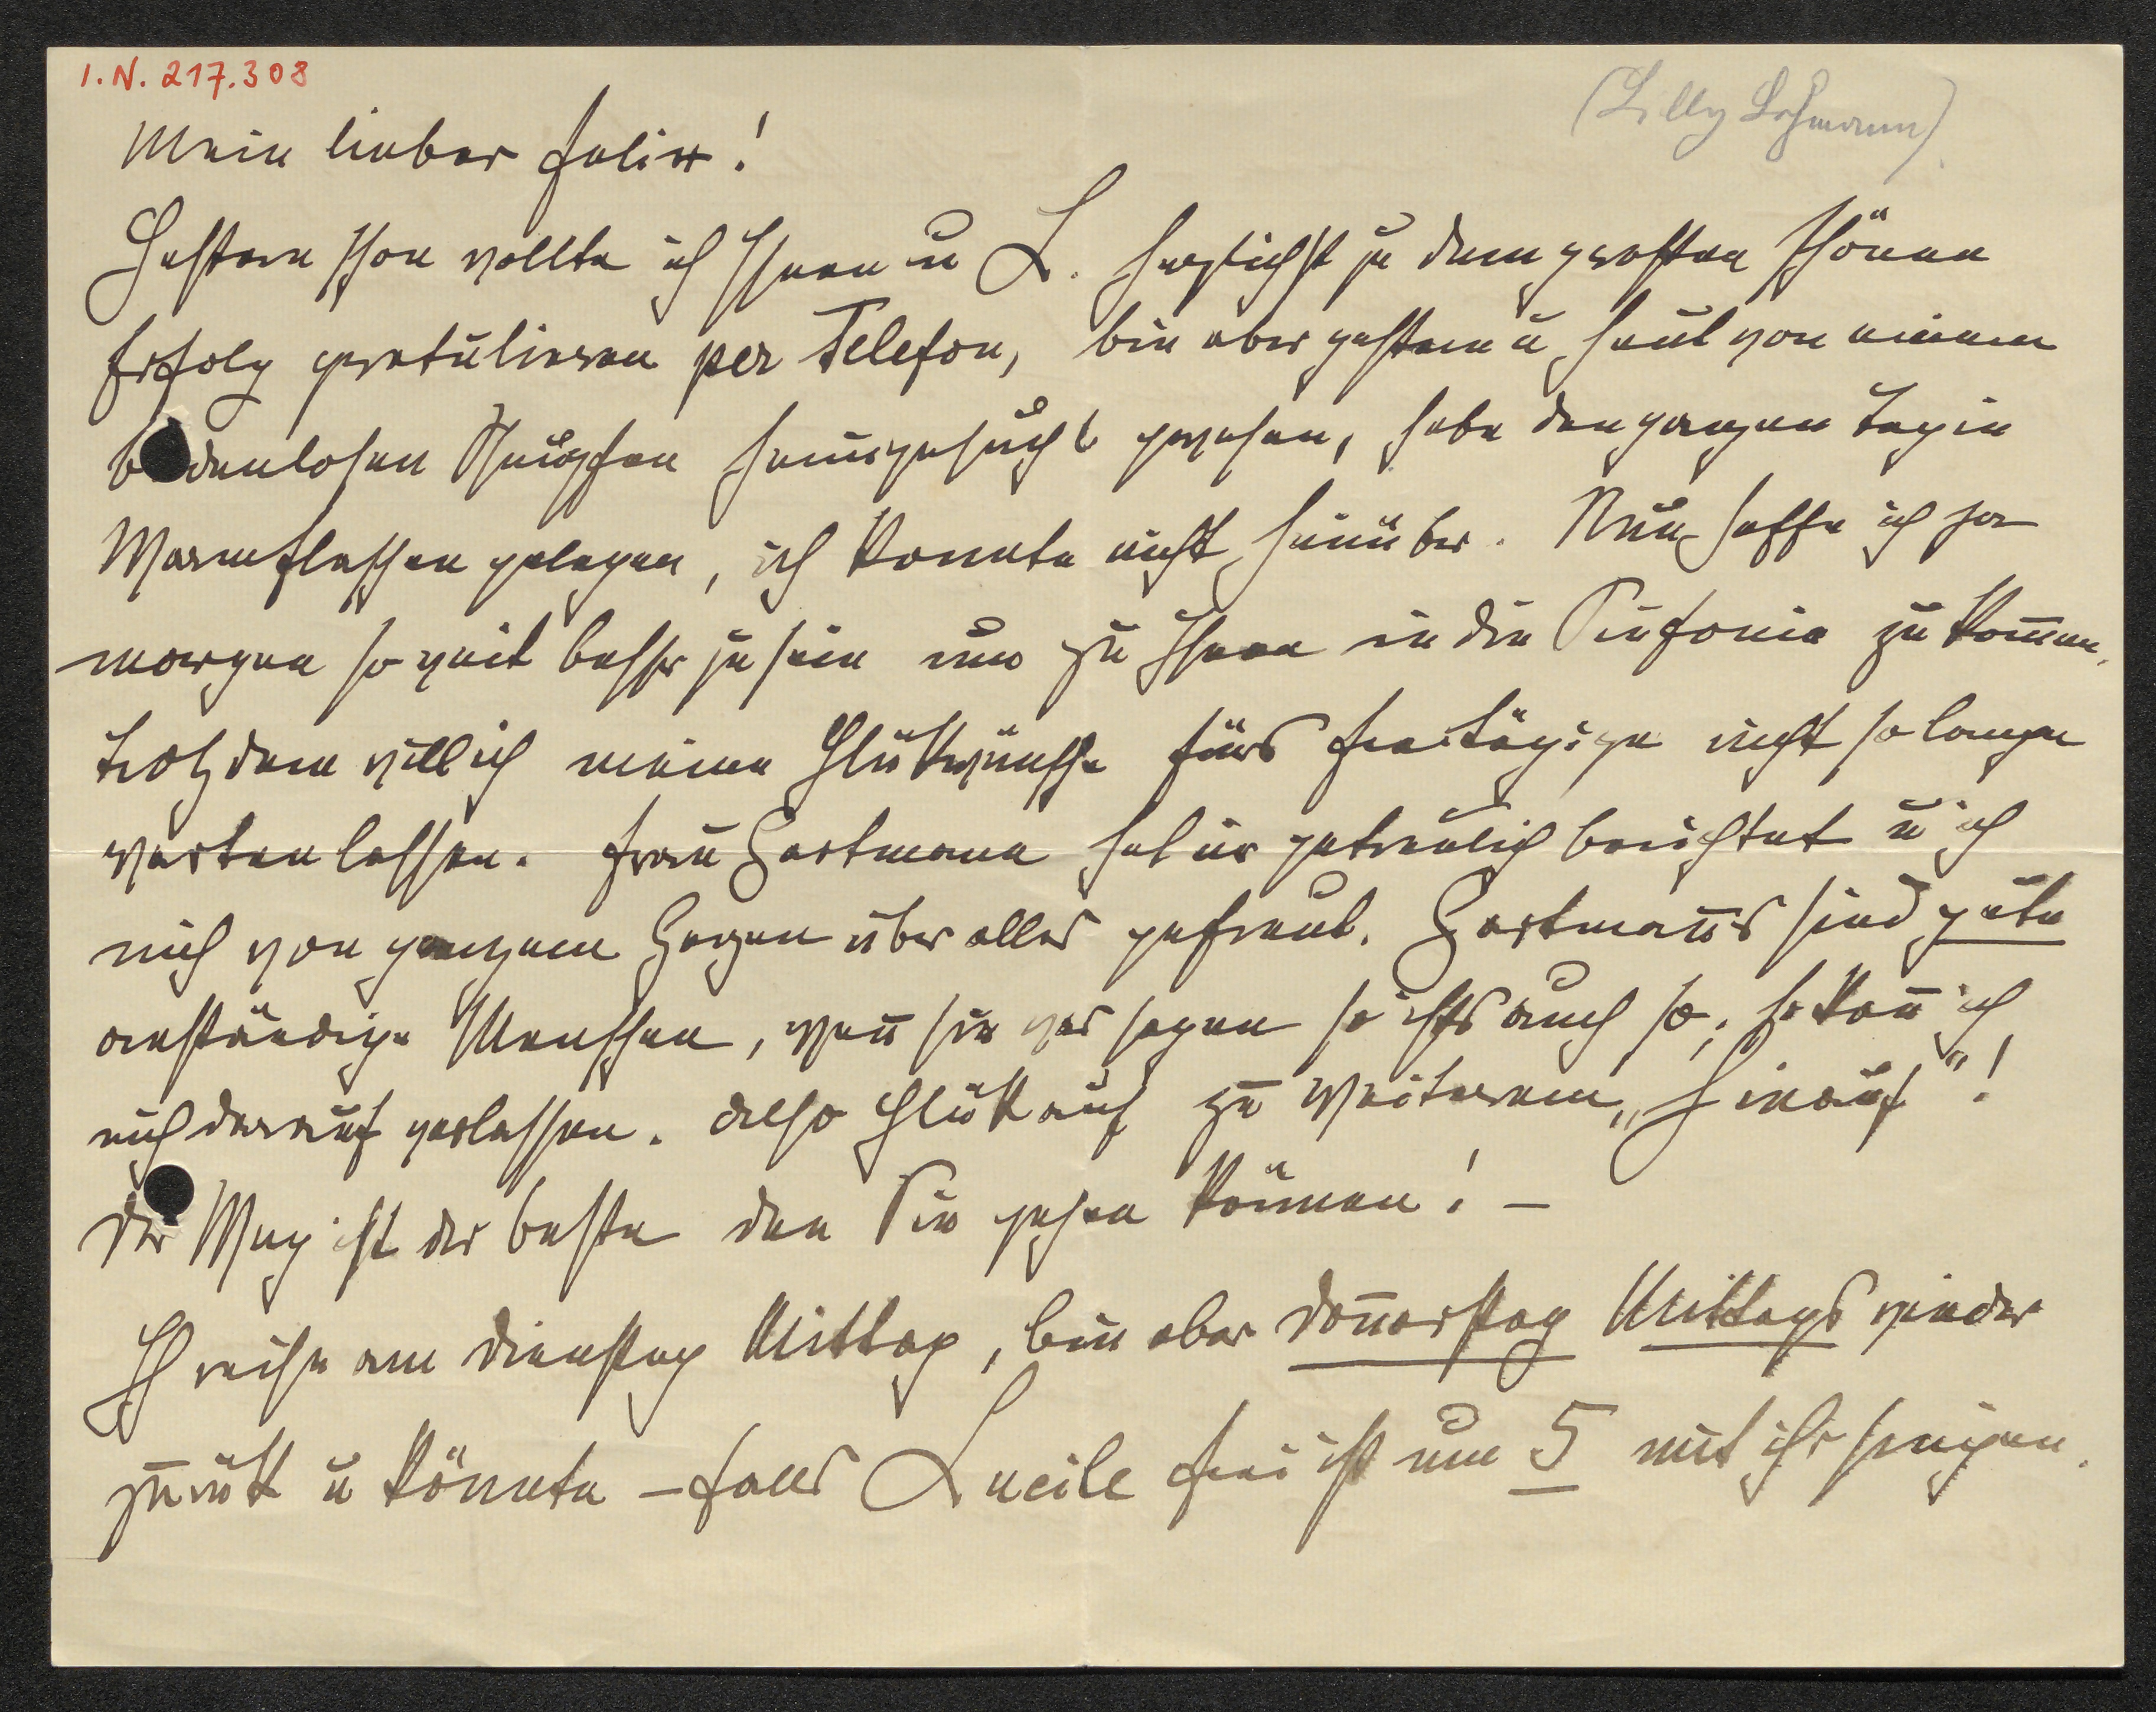 I. N. 217.308
(Lilly Lehmann)
Mein lieber Felix!
Gestern schon wollte ich Ihnen u L. herzlichst zu dem grossen schönen
Erfolg gratulieren per Telefon, bin aber gestern u heut von einem
bodenlosen Schnupfen heimgesucht gewesen, habe den ganzen Tag in
Warmflaschen gelegen, ich konnte nicht hinüber. Nun hoffe ich ja
morgen so weit besser zu sein um zu Ihnen in die Sinfonie zu kom̄en,
trotzdem will ich meine Glükwünsche fürs freitägige nicht so lange
warten lassen. Frau Hartmann hat getreulich berichtet u ich
mich von ganzem Herzen über alles gefreut. Hartman̄s sind gute
anständige Menschen, wen̄ sie was sagen so ists auch so; so kan̄ ich
mich darauf verlassen. Also Glük auf zu Weiterem „hinauf"!
Der Weg ist der beste den Sie gehen können! –
Ich reise am Dienstag Mittag, bin aber Don̄erstag Mittags wieder
zurük u könnte – falls Lucile frei ist um 5 mit ihr singen.